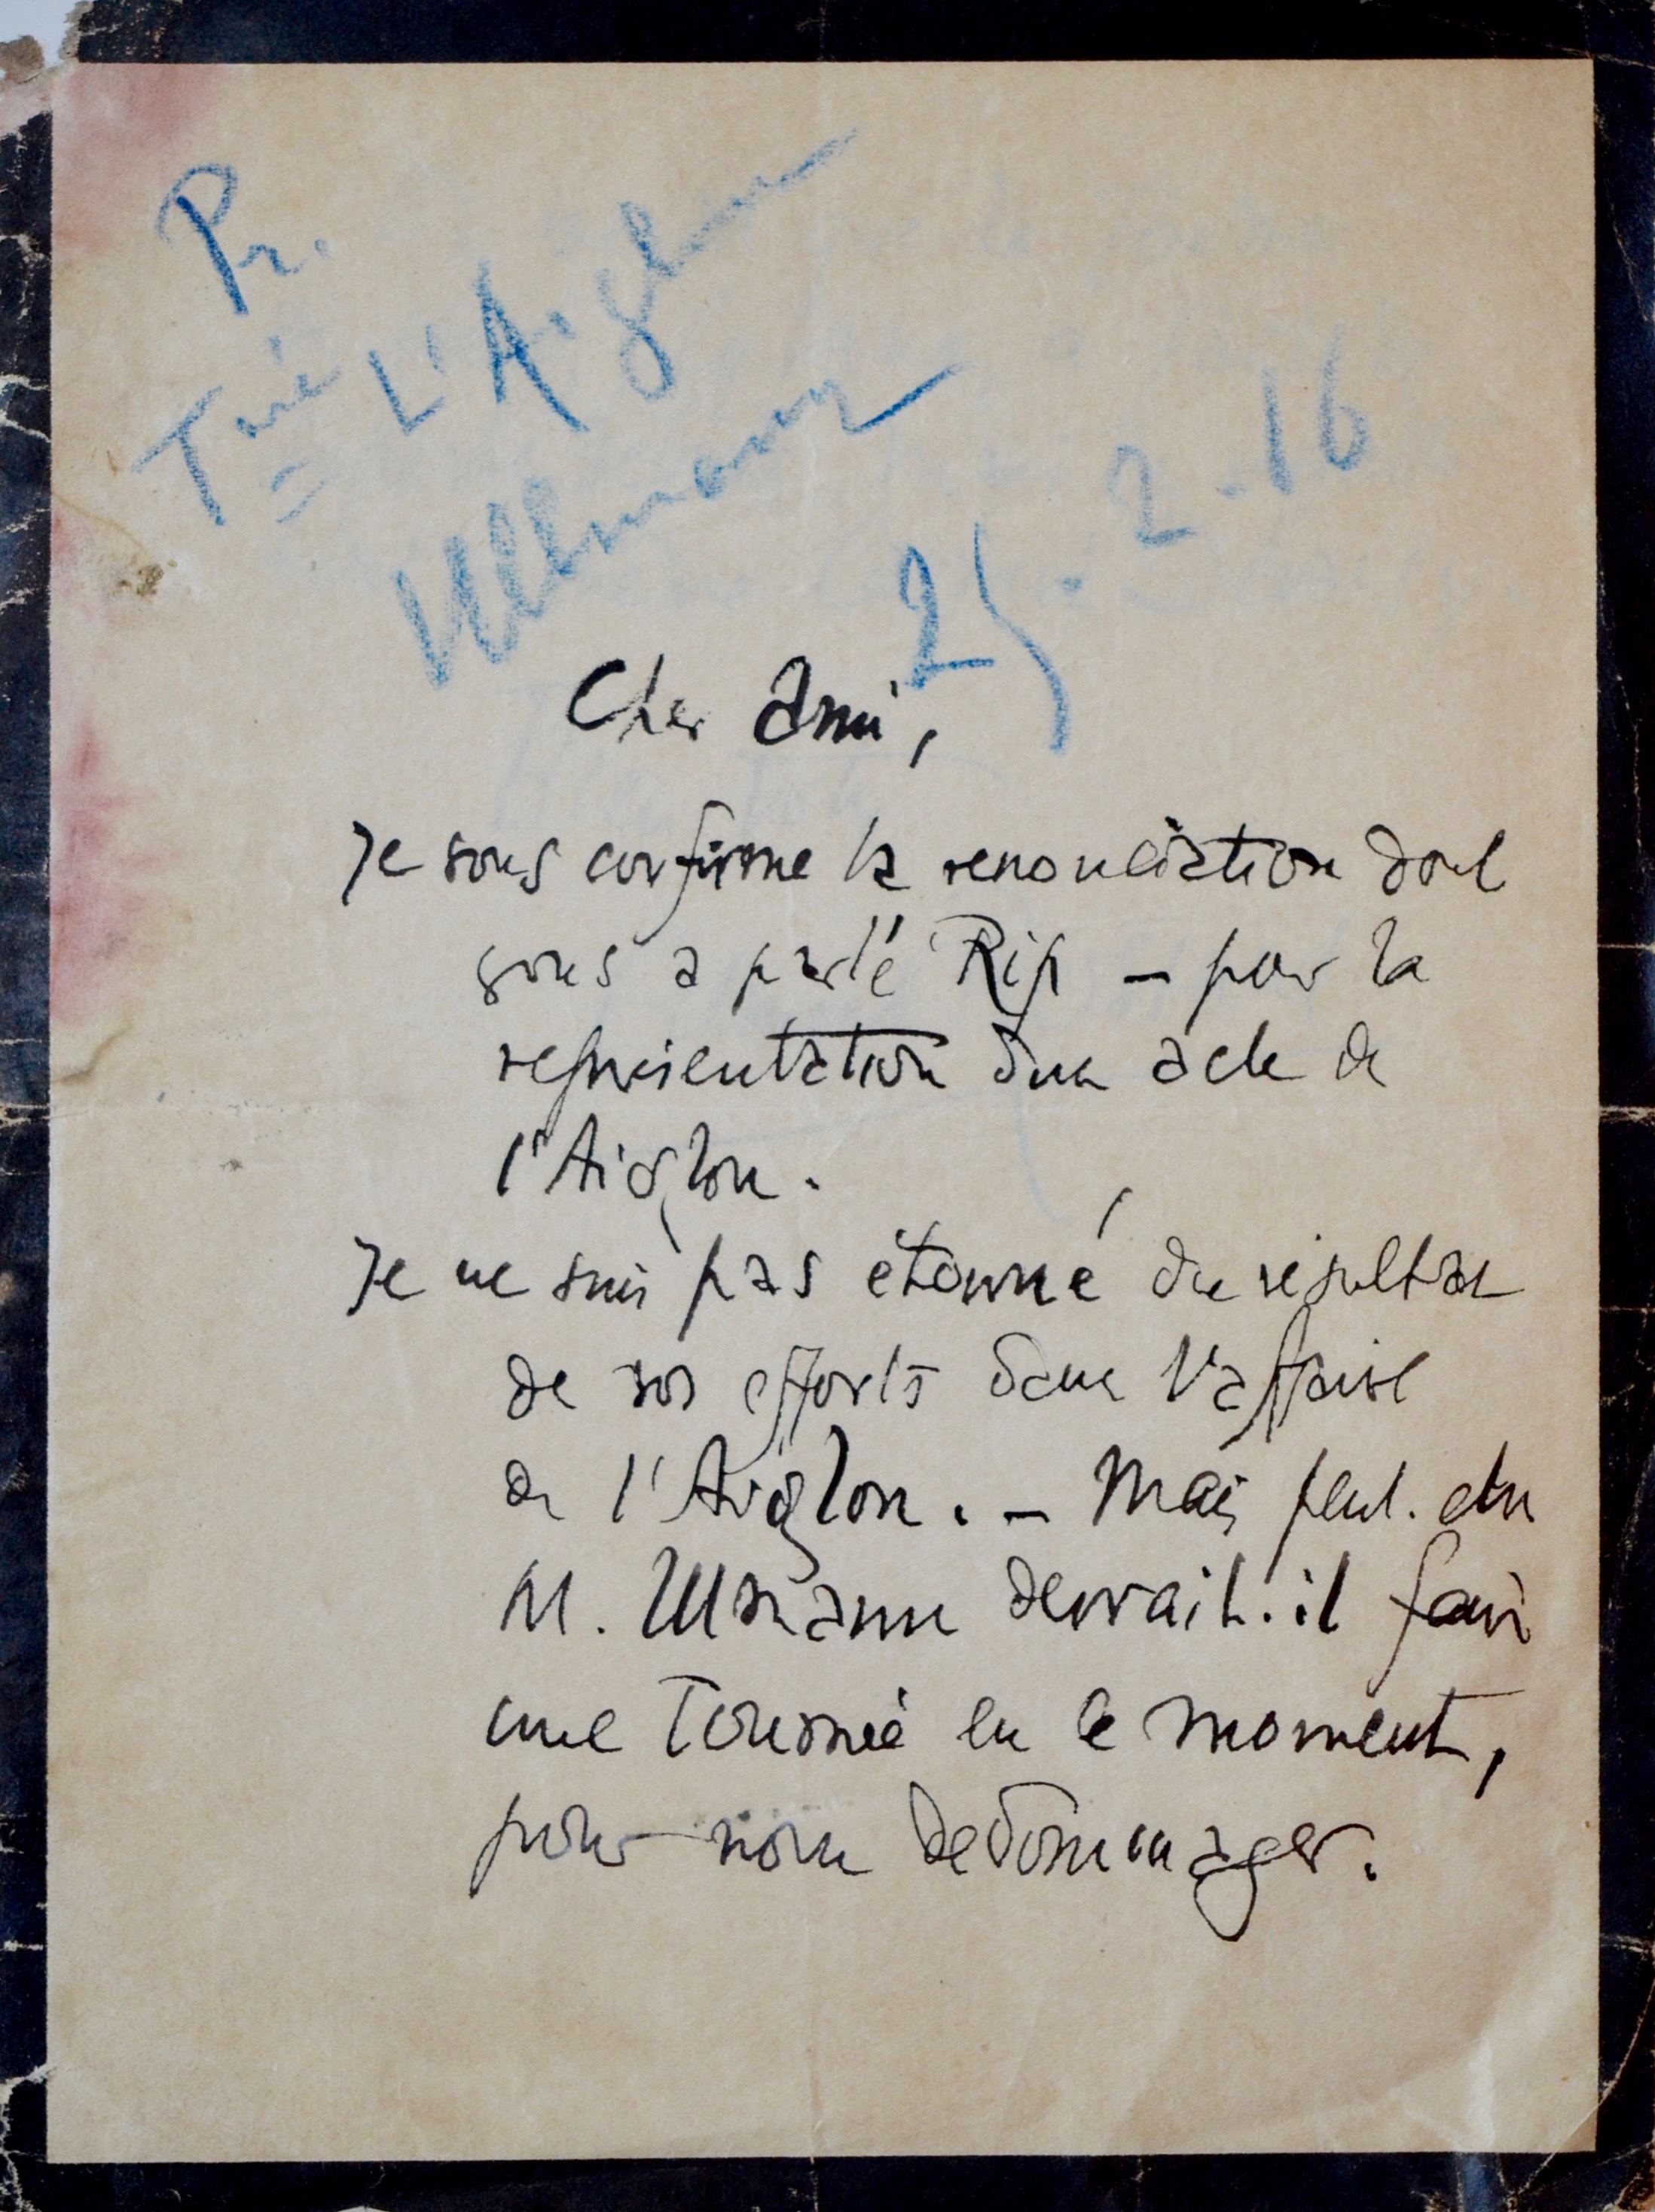 Pr.
Tné L'Aiglon
Ullmann
25.2.16
Cher ami,
Je vous confirme la renonciation dont
vous a parlé Rip – pour la
représentation d'un acte de
l'Aiglon.
Je ne suis pas étonné du résultat
de vos efforts dans l'affaire
de l'Aiglon. – Mais peut-être
M. Ullmann devrait-il faire
une Tournée en ce moment,
pour nous dédommager.